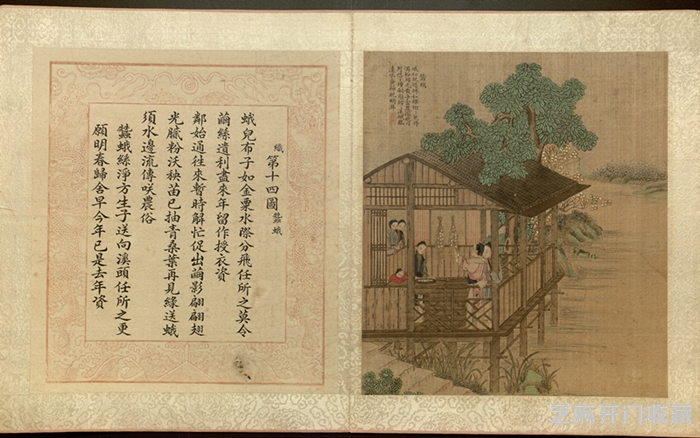 織 第十四圖 蠶蛾
蛾兒布子如金粟水際分飛任所之莫令
繭絲遺利盡來年留作授衣資
鄰始通往來暫時解忙促出繭影翩翩翅
光膩粉沃秧苗已抽青桑葉再見緣送蛾
須水邊流傳咲農俗
蠶蛾絲淨方生子送向溪頭任所之更
願明春歸舍早今年已是去年資
蠶蛾
开门收藏